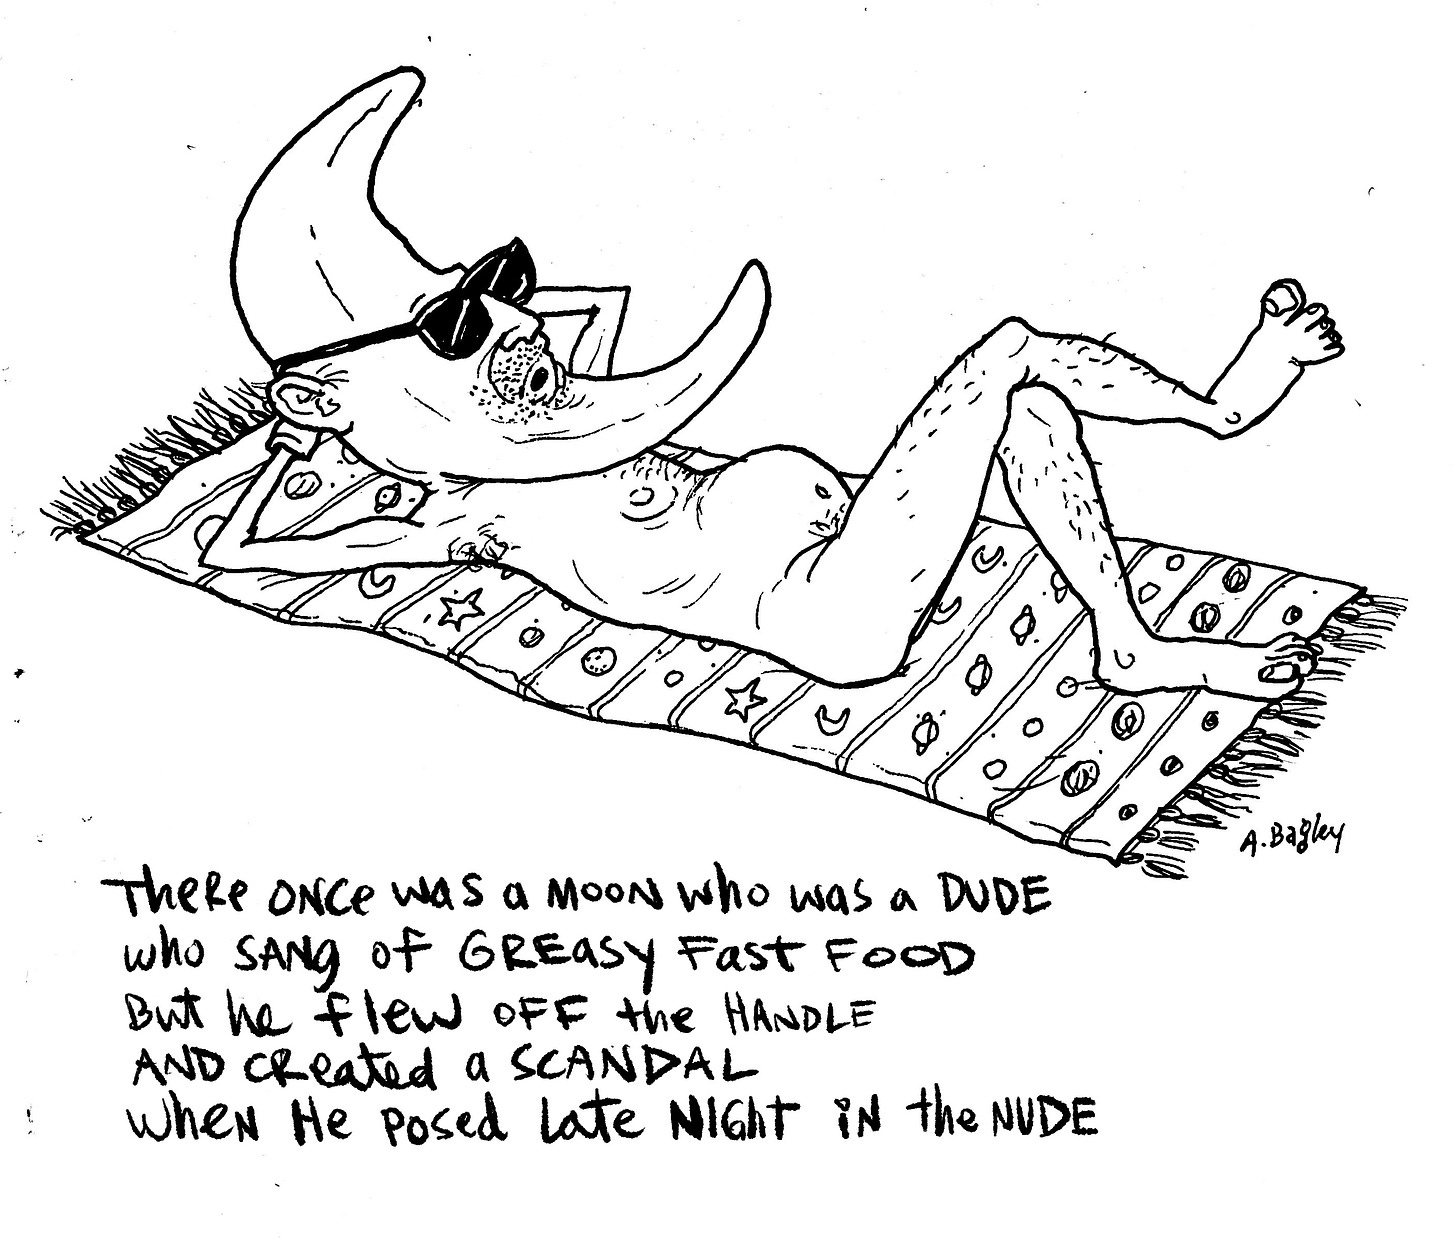 A. Bagley
There once was a MOON who was a DUDE
who SANg of GREasy Fast FOOD
But he flew OFF the HANDLE
AND CReated a SCANDAL
wheN He posed Late NIGht iN the NUDE